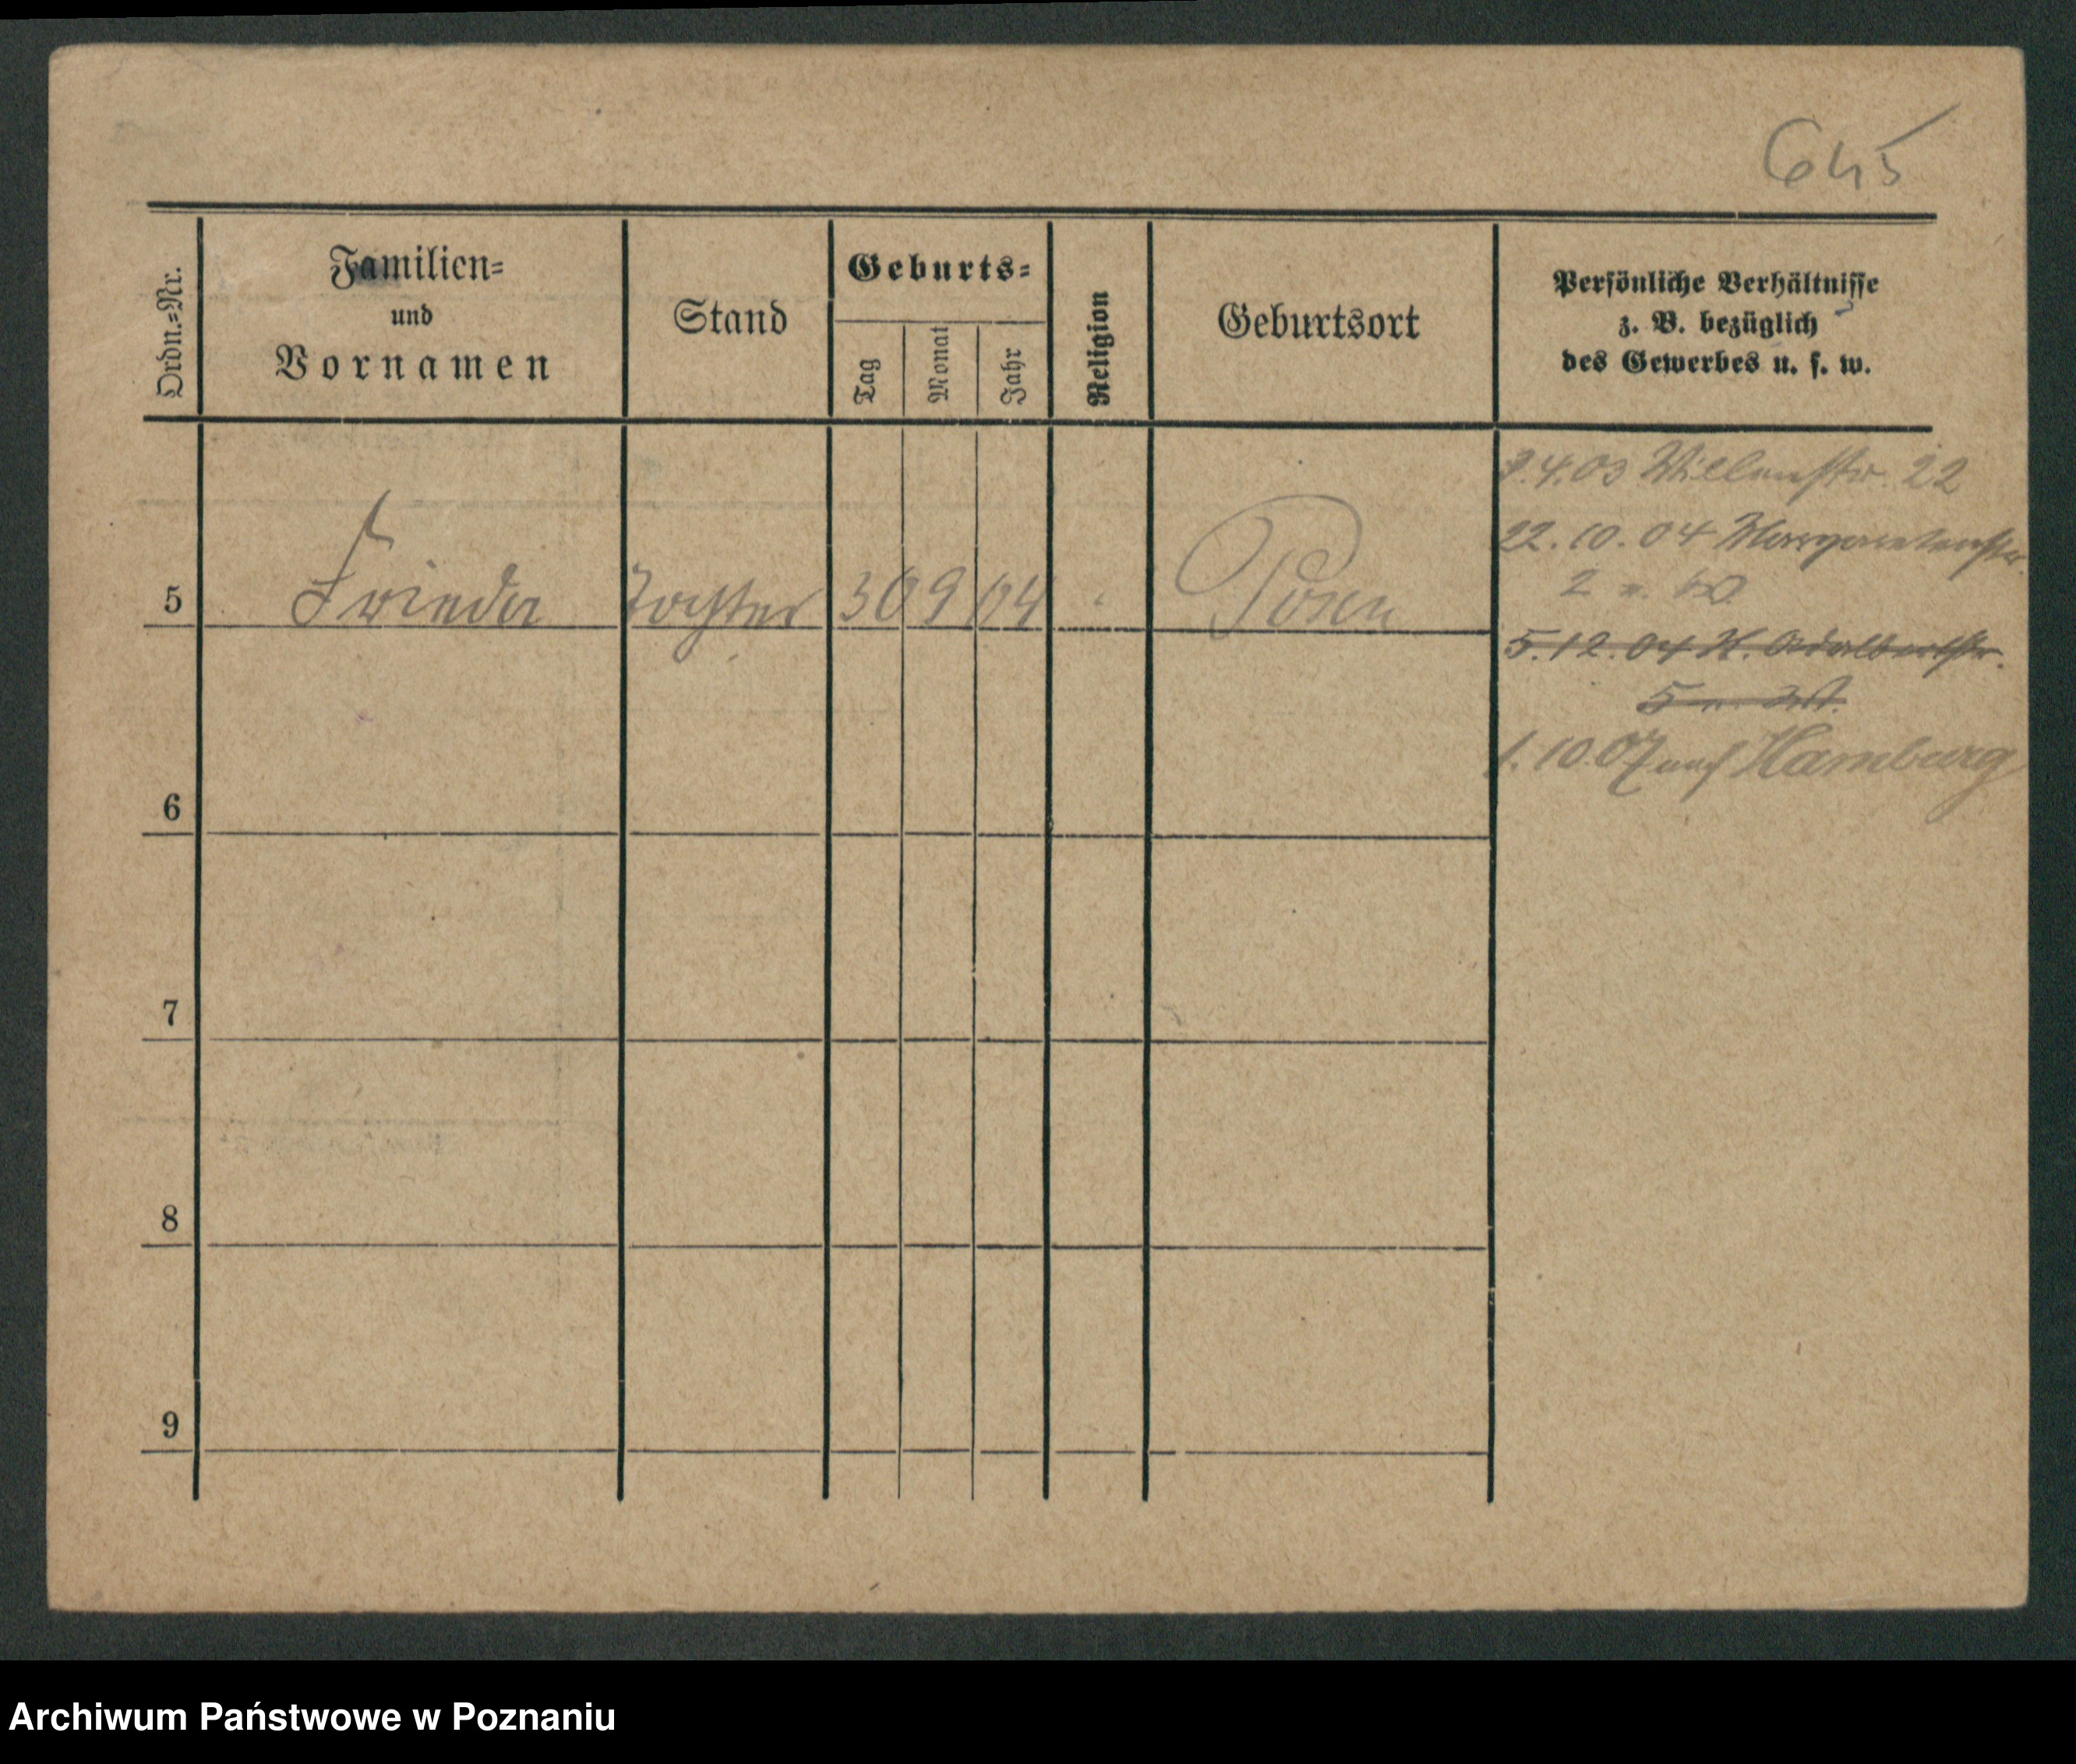 645
Ordn.=Nr.
Familien=
und
Vornamen
Stand
Geburts=
Tag
Monat
Jahr
Religion
Geburtsort
Persönliche Verhältnisse
z. B. bezüglich
des Gewerbes u. s. w.
5 Frieda Tochter 30 9 04 Posen
4.03 Willenstr. 22
22.10.04 Margaretenstr.
2
5.12.04 St. Adalbertstr.
5
1.10.07 nach Hamburg
6
7
8
9
Archiwum Państwowe w Poznaniu